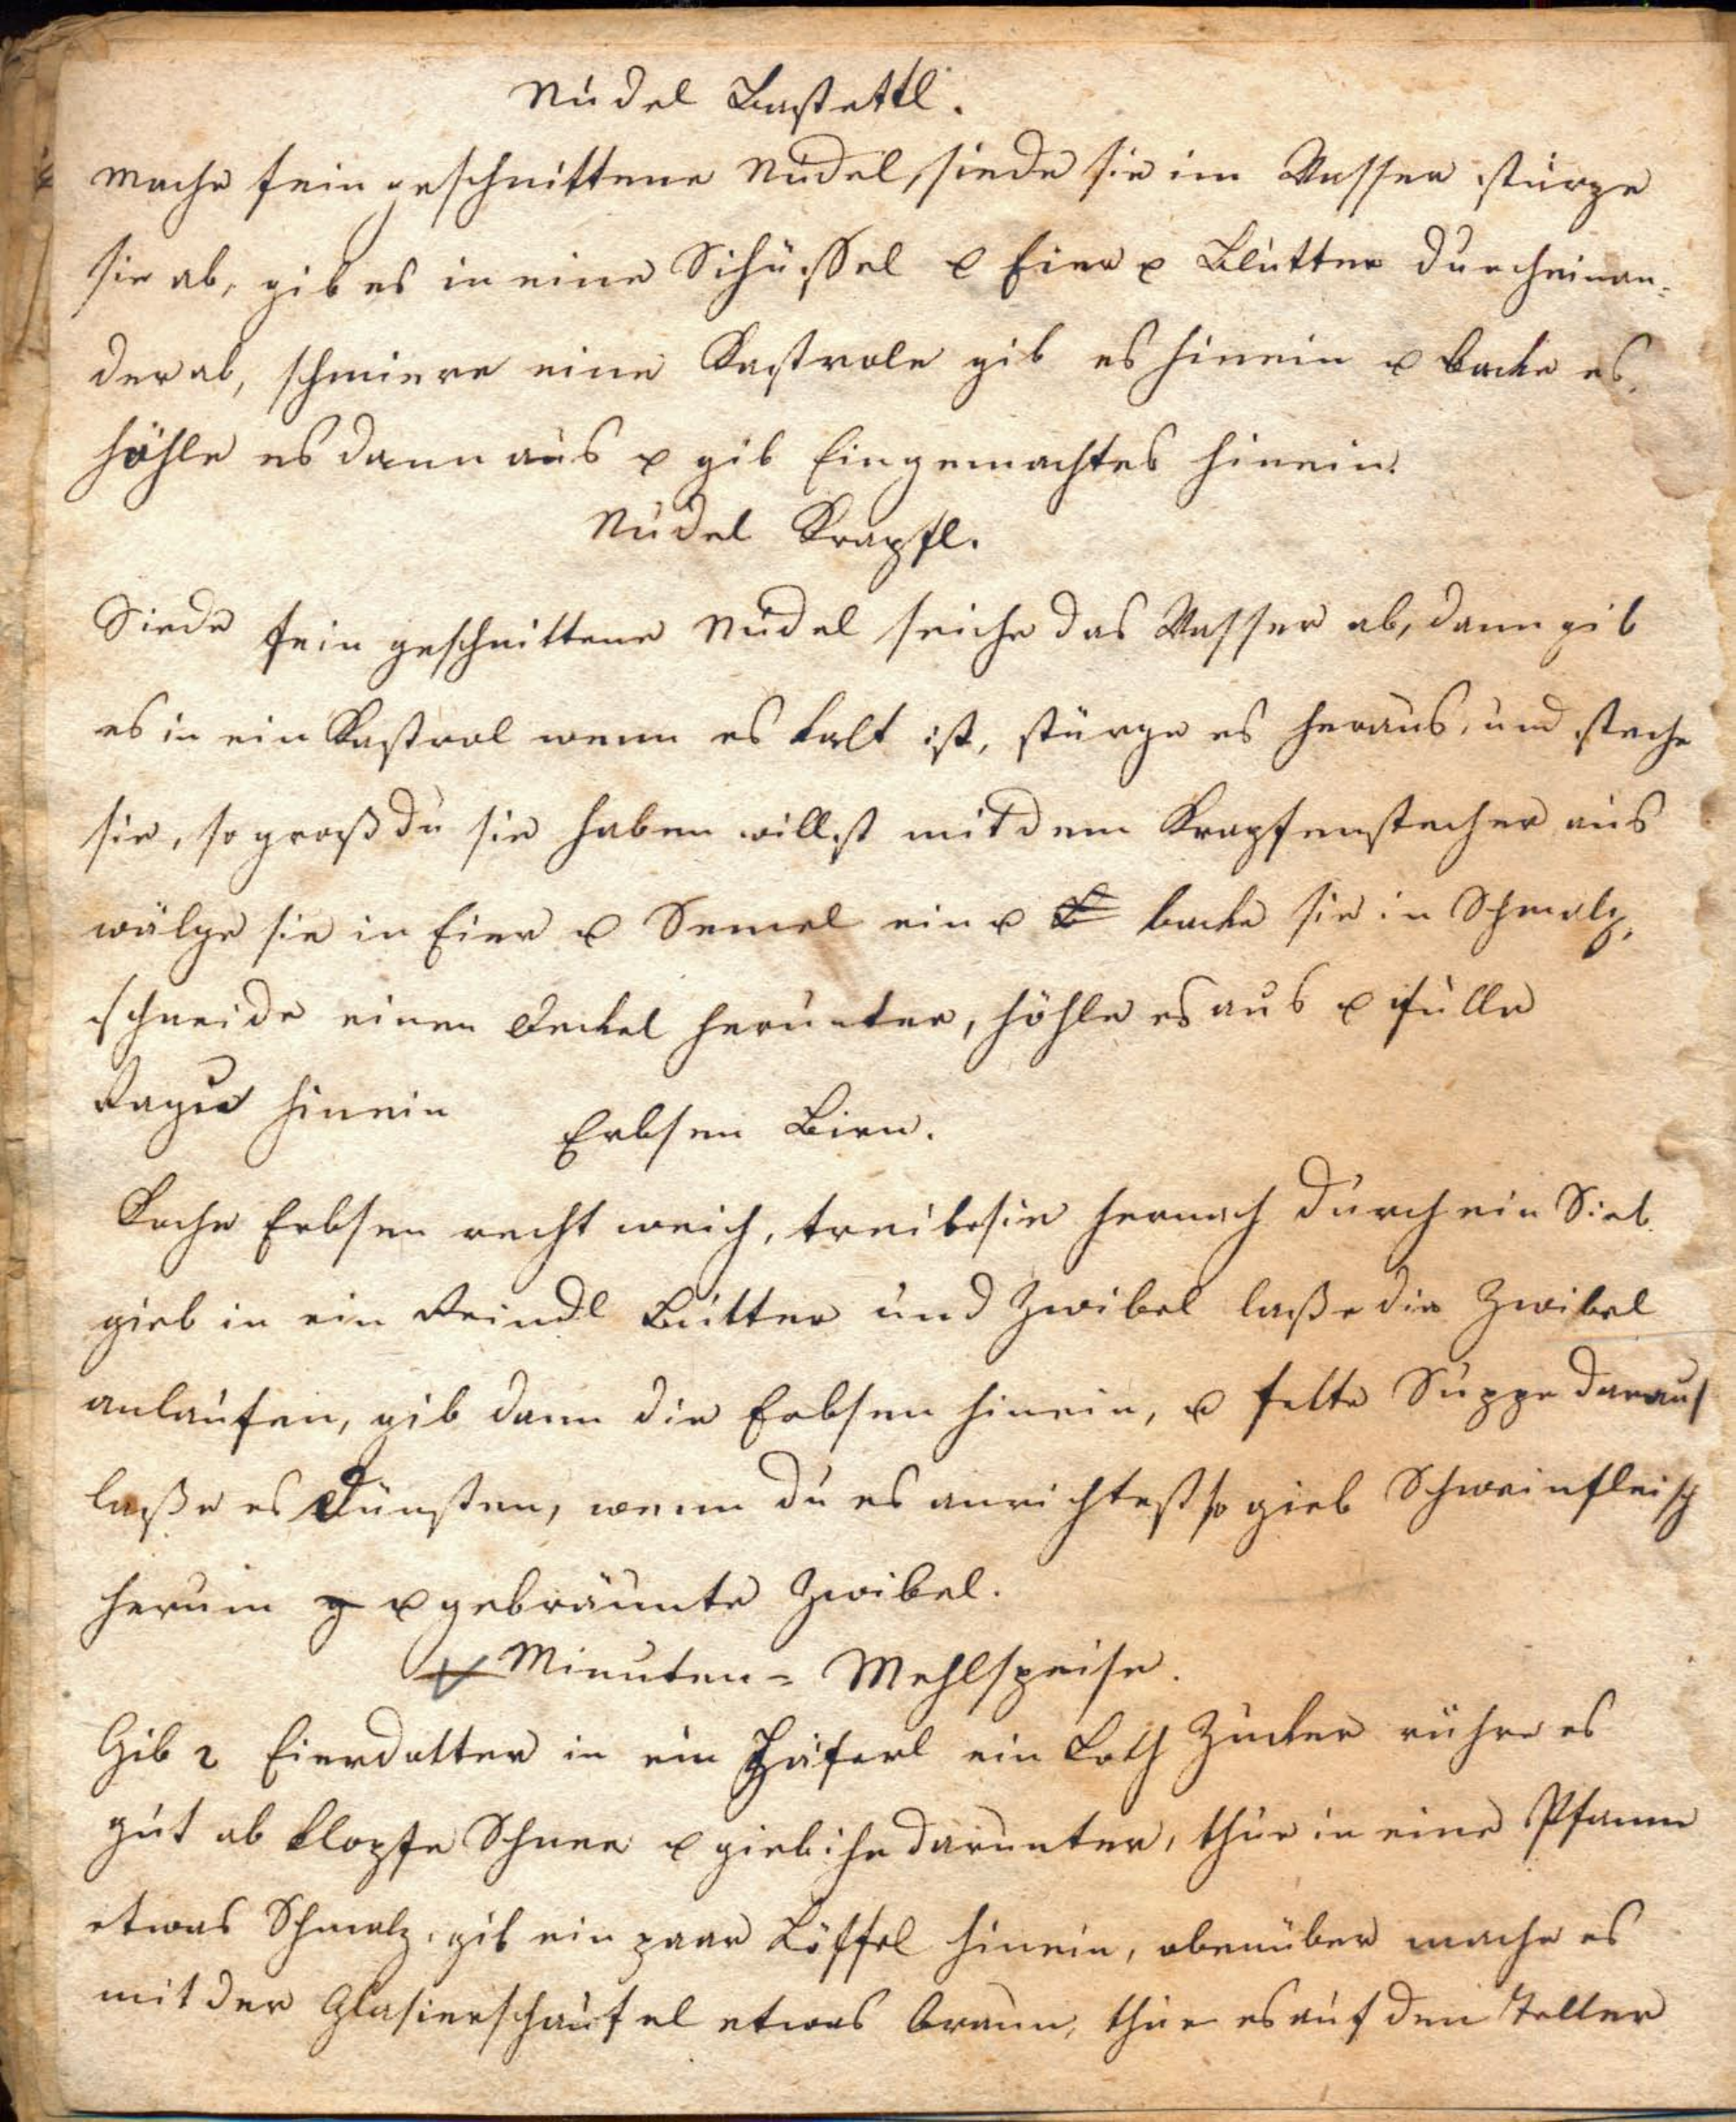 Nudel Bastettl.
Mache fein geschnittene Nudel, siede sie im Wasser stürze
sie ab, gib es in eine Schüssel u Eier u Butter durcheinan=
der ab, schmiere eine Kastrole gib es hinein u backe es,
höhle es dann aus u gib Eingemachtes hinein.
Nudel Krapfl.
Siede fein geschnittene Nudel seiche das Wasser ab, dann gib
es in ein Kastrol wenn es kalt ist, stürze es heraus, und steche
sie, so groß du sie haben willst mit dem Krapfenstecher aus
wälze sie in Eier u Semel ein u backe sie in Schmalz,
schneide einen Deckel herunter, höhle es aus u fülle
Ragu hinein
Erbsen Birn.
Koche Erbsen recht weich, treibe sie hernach durch ein Sieb.
gieb in ein Reindl Butter und Zwibel laße die Zwibel
anlaufen, gib dann die Erbsen hinein, u fette Suppe darauf
laße es dünsten, wenn du es anrichtest so gieb Schweinfleisch
herum u gebräunte Zwibel.
Minuten = Mehlspeise.
Gib 2 Eierdotter in ein Häferl ein Loth Zucker rühre es
gut ab klopfe Schnee u gieb ihn darunter, thue in eine Pfanne
etwas Schmalz, gib ein paar Löffel hinein, obenüber mache es
mit der Glasierschaufel etwas braun, thue es auf den Teller